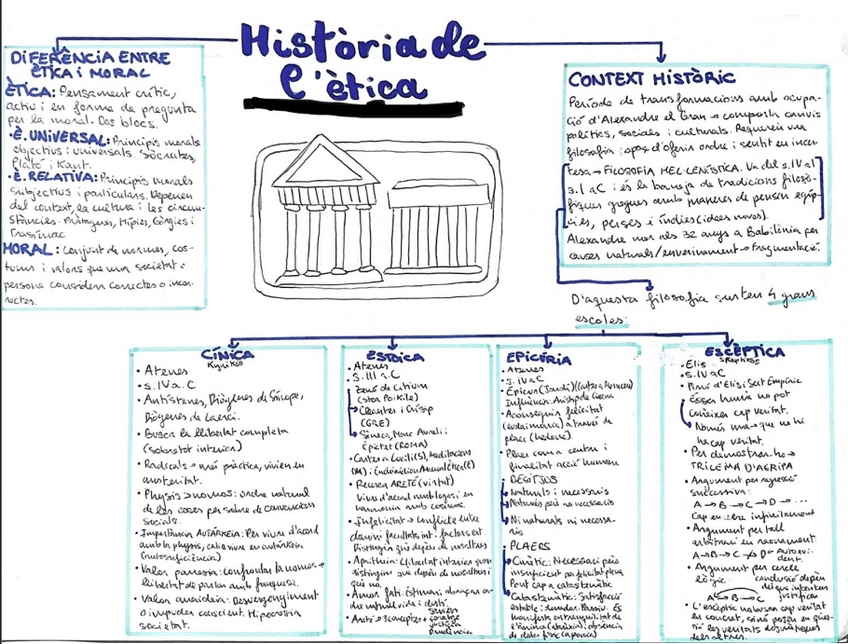 Història de
l'ètica
DIFERÈNCIA ENTRE
ÈTICA i MORAL
ÈTICA: Pensament crític,
actiu i en forma de pregunta
per la moral. Dos blocs.
·È. UNIVERSAL: Principis morals
objectius i universals. Sòcrates,
Plató i Kant.
·È. RELATIVA: Principis morals
subjectius i particulars. Depenen
del context, la cultura i les circum-
stàncies. Protàgores, Hípies, Gòrgies i
Trasímac
MORAL: Conjunt de normes, cos-
tums i valors que una societat o
persona considera correctes o inco-
rrectes.
CONTEXT HISTÒRIC
Període de transformacions amb ocupa-
ció d'Alexandre el Gran → comporta canvis
polítics, socials i culturals. Requereix una
filosofia capaç d'oferir ordre i sentit en incer-
tesa → FILOSOFIA HEL·LENÍSTICA. Va del s.IV al
s.I aC i és la barreja de tradicions filosò-
fiques gregues amb maneres de pensar egíp-
cies, perses i índies (idees noves).
Alexandre mor als 32 anys a Babilònia per
causes naturals/enverinament → Fragmentació.
D'aquesta filosofia surten 4 grans
escoles:
CÍNICA
Kynikós
· Atenes
· s. IV a. C
· Antístenes, Diògenes de Sínope,
Diògenes de Laerci.
· Busca la llibertat completa
(sobretot interior)
· Radicals → més pràctica, vivien en
austeritat.
· Physis > nomos: ordre natural
de les coses per sobre de convencions
socials.
· Importància AUTÀRKEIA: Per viure d'acord
amb la physis, calia viure en autàrkeia
(autosuficiència)
· Valor parresia: confrontar la nomos →
llibertat de parlar amb franquesa.
· Valor anaideia: Desvergonyiment
o impudor conscient. Hipocresia
societat.
ESTOICA
· Atenes
· S. III a. C
· Zenó de Citium
(stoa Poikile)
Cleantes i Crisip
(GRE)
Sèneca, Marc Aureli i
Epictet (ROMA)
· Cartes a Lucili (S), Meditacions
(M) i Enchiridion Manual Ètica (E)
· Recerca ARETÉ (virtut)
Viure d'acord amb logos i en
harmonia amb cosmos.
· Infelicitat → Conflicte entre
Distingir què depèn de nosaltres
· Apatheia: Llibertat interior
distingim què depèn de nosaltres i
què no.
· Amor fati: Estimar
· Areté → 3 conceptes
EPICÚRIA
· Atenes
· s. IV aC
· Epicur (Jardí) (Carta a Meneceu)
Influència: Aristip de Cirene
· Aconseguir felicitat
(eudaimonia) a través de
plaer (hedoné).
· Plaer com a centre i
finalitat acció humana
· DESITJOS
Naturals i necessaris
Naturals però no necessaris
Ni naturals ni necessa-
ris
· PLAERS
Cinètic: Necessari però
insuficient per felicitat plena
Pot cap a catastemàtic
Catastemàtic: Satisfacció
estable i duradora. Passiu. Es
manifesta en tranquil·litat de
l'ànima (ataraxia) i absència
de dolor físic (aponia)
ESCÈPTICA
Skeptikós
· Elis
· s. IV aC
· Pirró d'Elis i Sext Empíric
· Ésser humà no pot
conèixer cap veritat.
· Només una → que no hi
ha cap veritat.
· Per demostrar-ho →
TRILEMA D'AGRIPA
· Argument per regressió
successiva:
A → B → C → D → ...
Cap enrere infinitament
· Argument per tall
arbitrari en raonament.
A→B→C → D = Autoevi-
dent.
· Argument per cercle
lògic.
conclusió depèn
del que intenten
justificar
A → B → C